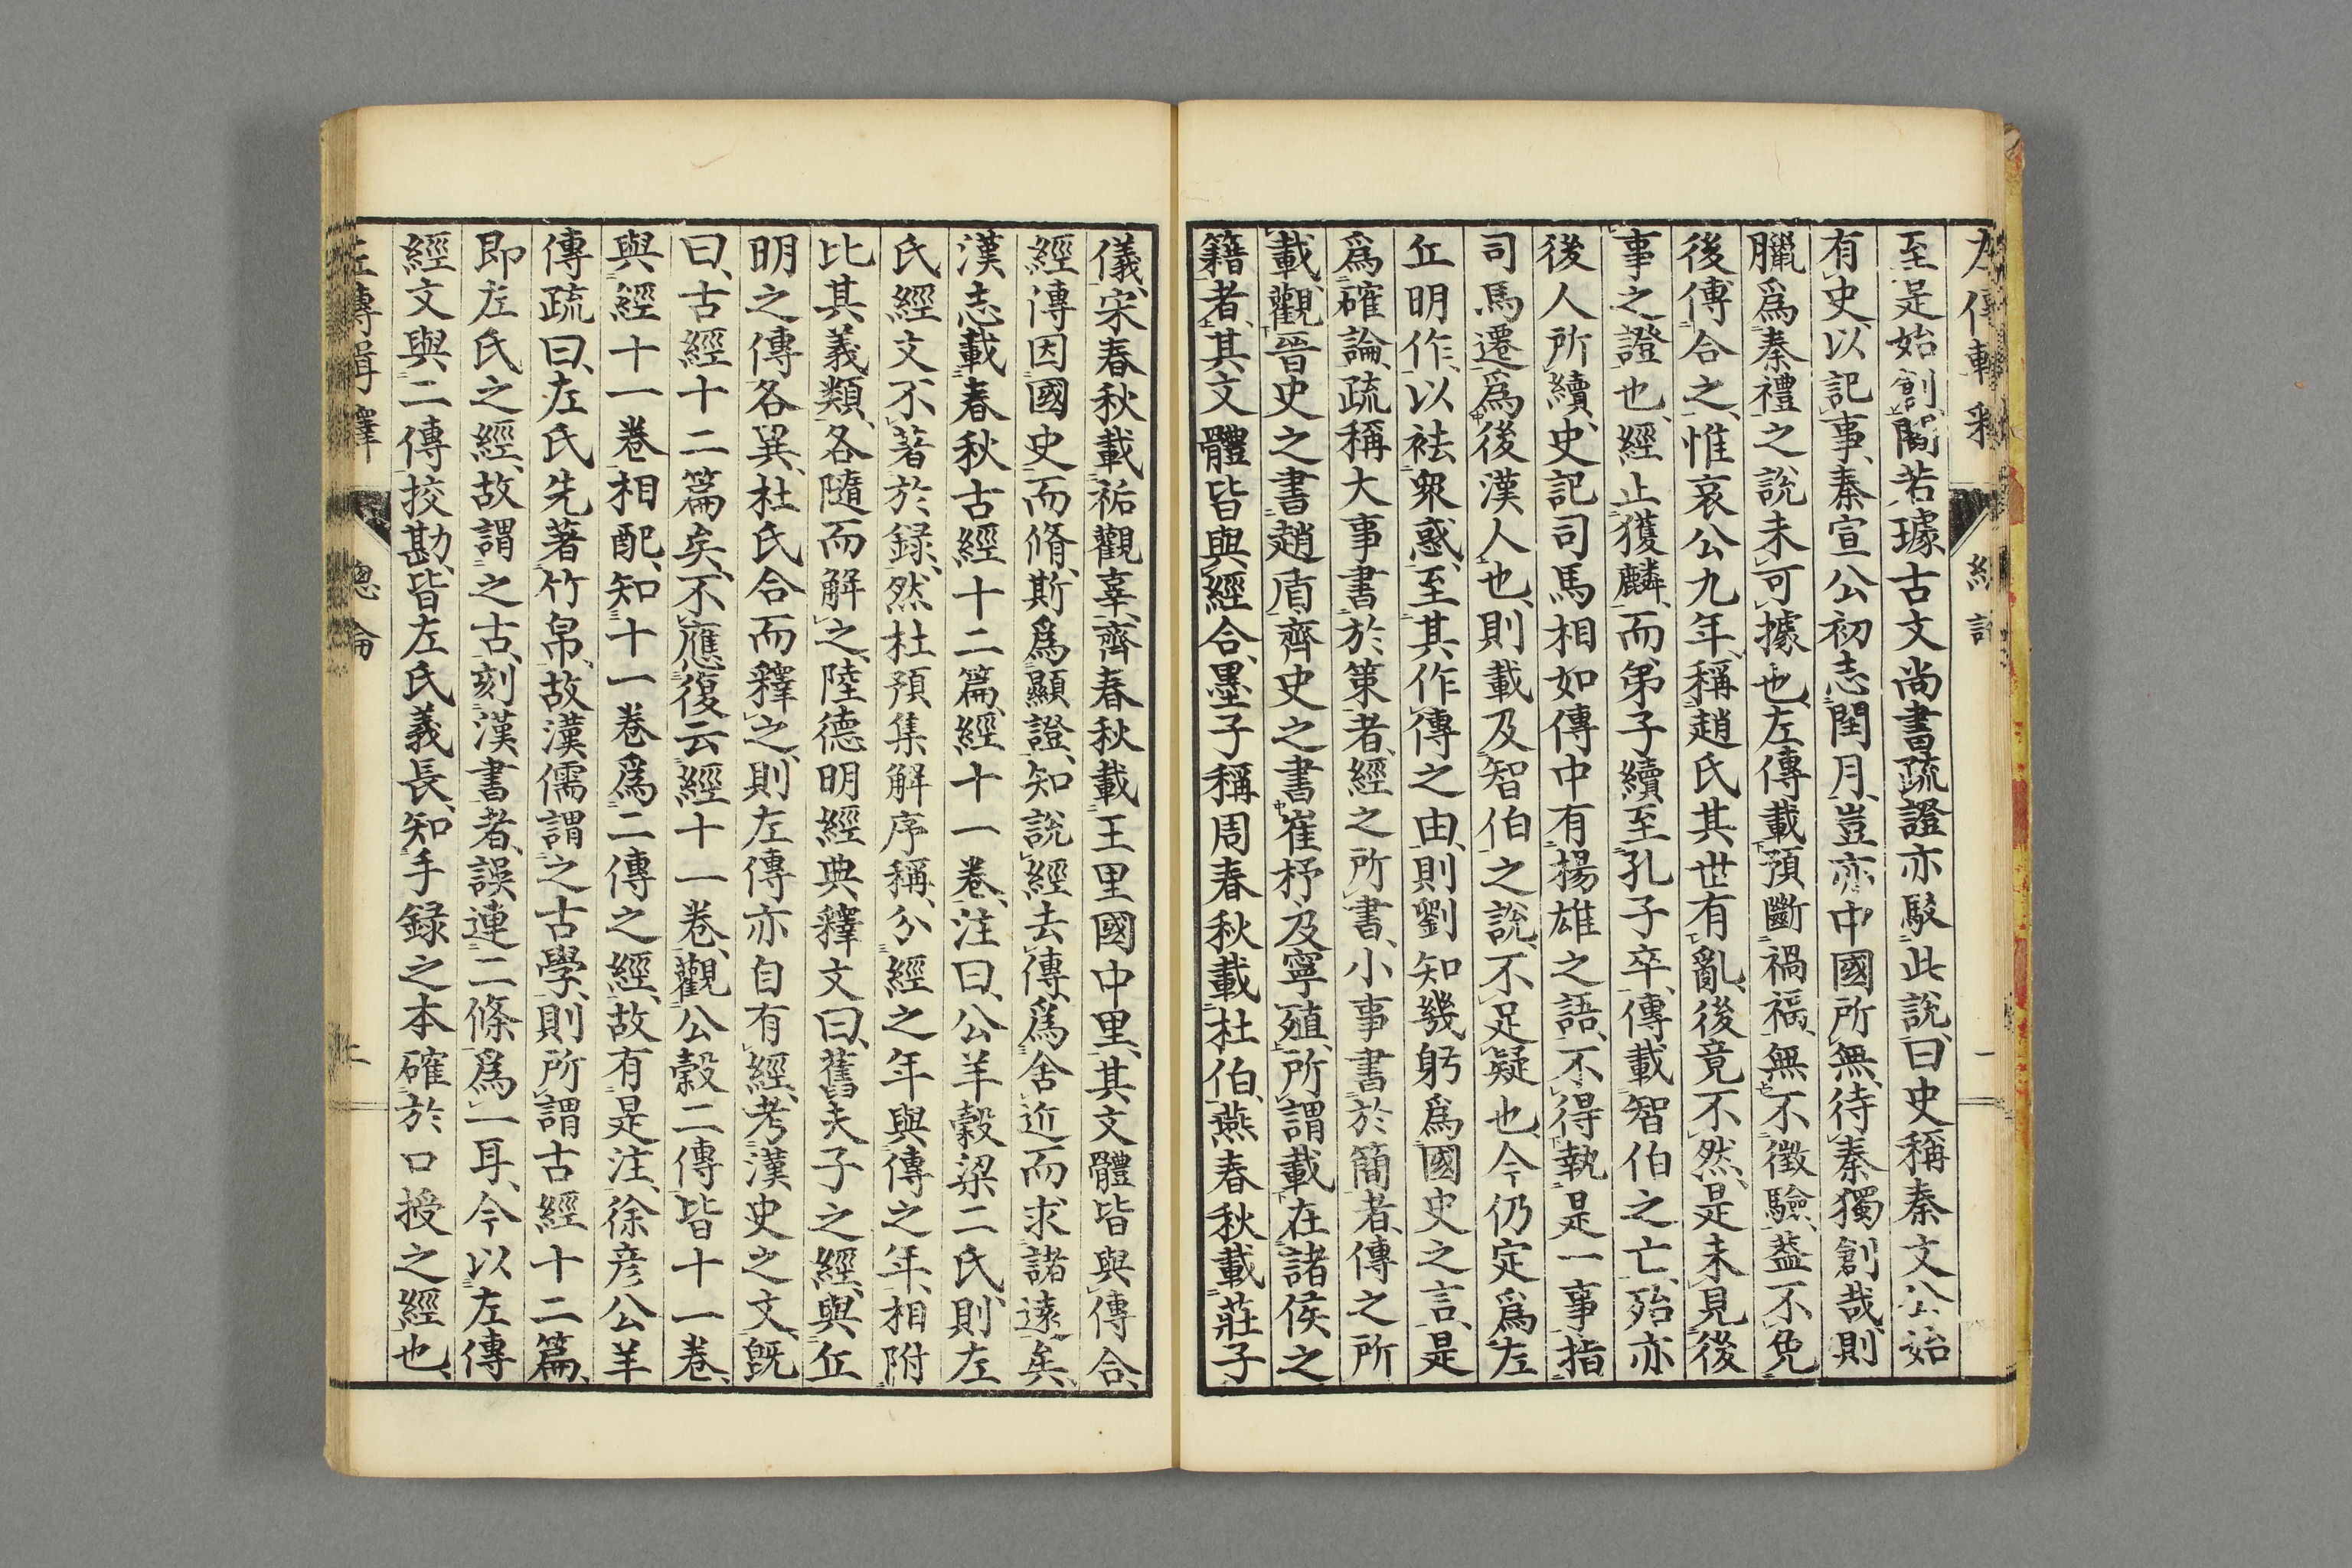 左傳輯釋
至是始創、閻若璩古文尚書疏證亦駁此說、曰史稱秦文公始
有史以記事、秦宣公初志閏月、豈亦中國所無、待秦獨創哉、則
臘爲秦禮之說未可據也、左傳載預斷禍福、無不徵驗、葢不免
後傳合之、惟哀公九年、稱趙氏其世有亂、後竟不然、是未見後
事之證也、經止獲麟、而弟子續至孔子卒、傳載智伯之亡、殆亦
後人所續、史記司馬相如傳中有揚雄之語、不得執是一事指
司馬遷爲後漢人也、則載及智伯之說、不足疑也、今仍定爲左
丘明作、以袪衆惑、至其作傳之由、則劉知幾躬爲國史之言、是
爲確論、疏稱大事書於策者、經之所書、小事書於簡者、傳之所
載、觀晉史之書趙盾、齊史之書崔杼、及寧殖所謂載在諸侯之
籍者、其文體皆與經合、墨子稱周春秋載杜伯、燕春秋載莊子
儀、宋春秋載祏觀辜、齊春秋載王里國中里、其文體皆與傳合、
經傳因國史而脩、斯爲顯證、知說經去傳、爲舍近而求諸遠矣、
漢志載春秋古經十二篇、經十一卷、注曰、公羊穀梁二氏、則左
氏經文不著於録、然杜預集解序稱、分經之年與傳之年、相附
比其義類、各隨而解之、陸德明經典釋文曰、舊夫子之經、與丘
明之傳各異、杜氏合而釋之、則左傳亦自有經、考漢史之文、旣
曰、古經十二篇矣、不應復云經十一卷、觀公穀二傳皆十一卷、
與經十一卷相配、知十一卷爲二傳之經、故有是注、徐彥公羊
傳疏曰、左氏先著竹帛、故漢儒謂之古學、則所謂古經十二篇、
即左氏之經、故謂之古、刻漢書者、誤連二條爲一耳、今以左傳
經文與二傳挍勘、皆左氏義長、知手録之本確於口授之經也、
左傳輯釋 總論